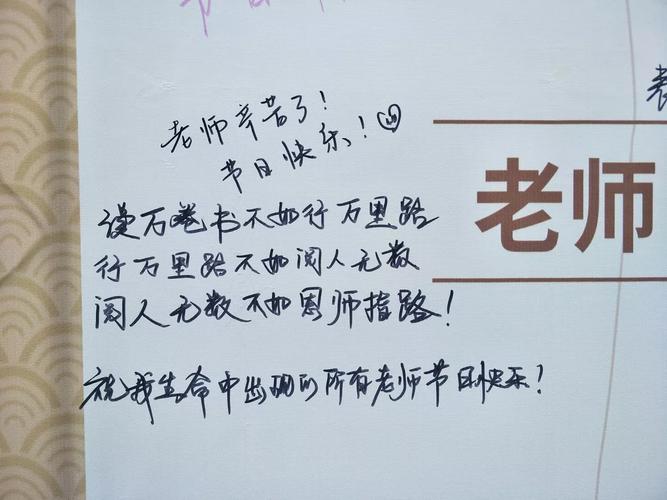 节日快
老师辛苦了!
节日快乐!
读万卷书不如行万里路
行万里路不如阅人无数
阅人无数不如恩师指路!
祝我生命中出现的所有老师节日快乐!
老师